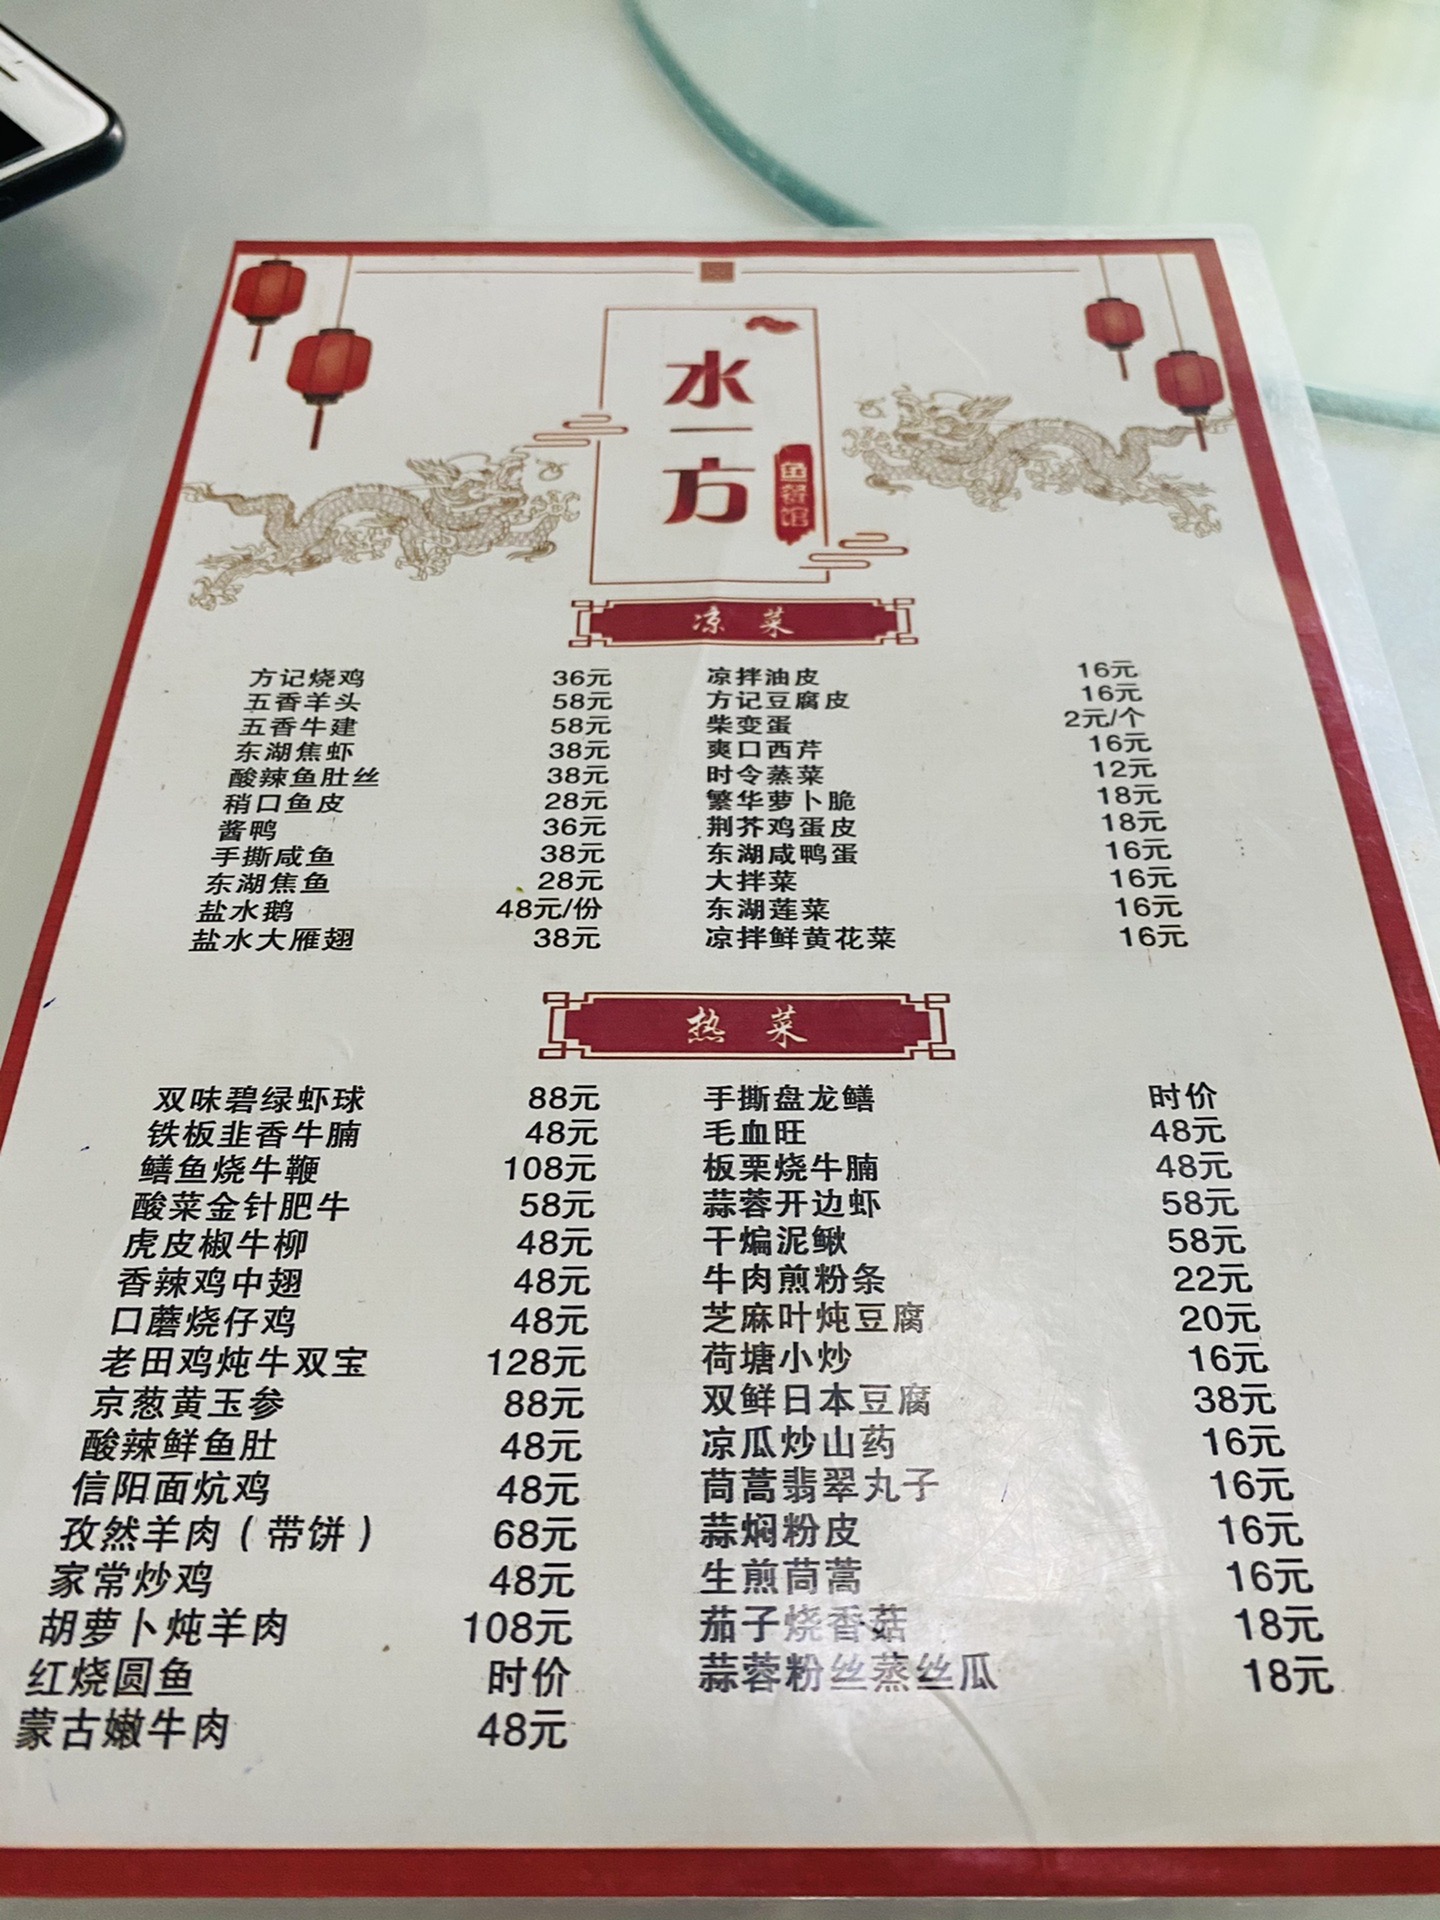 水一方
鱼餐馆
凉菜
方记烧鸡 36元 凉拌油皮 16元
五香羊头 58元 方记豆腐皮 16元
五香牛建 58元 柴变蛋 2元/个
东湖焦虾 38元 爽口西芹 16元
酸辣鱼肚丝 38元 时令蒸菜 12元
稍口鱼皮 28元 繁华萝卜脆 18元
酱鸭 36元 荆芥鸡蛋皮 18元
手撕咸鱼 38元 东湖咸鸭蛋 16元
东湖焦鱼 28元 大拌菜 16元
盐水鹅 48元/份 东湖莲菜 16元
盐水大雁翅 38元 凉拌鲜黄花菜 16元
热菜
双味碧绿虾球 88元 手撕盘龙鳝 时价
铁板韭香牛腩 48元 毛血旺 48元
鳝鱼烧牛鞭 108元 板栗烧牛腩 48元
酸菜金针肥牛 58元 蒜蓉开边虾 58元
虎皮椒牛柳 48元 干煸泥鳅 58元
香辣鸡中翅 48元 牛肉煎粉条 22元
口蘑烧仔鸡 48元 芝麻叶炖豆腐 20元
老田鸡炖牛双宝 128元 荷塘小炒 16元
京葱黄玉参 88元 双鲜日本豆腐 38元
酸辣鲜鱼肚 48元 凉瓜炒山药 16元
信阳面炕鸡 48元 茼蒿翡翠丸子 16元
孜然羊肉（带饼） 68元 蒜焖粉皮 16元
家常炒鸡 48元 生煎茼蒿 16元
胡萝卜炖羊肉 108元 茄子烧香菇 18元
红烧圆鱼 时价 蒜蓉粉丝蒸丝瓜 18元
蒙古嫩牛肉 48元